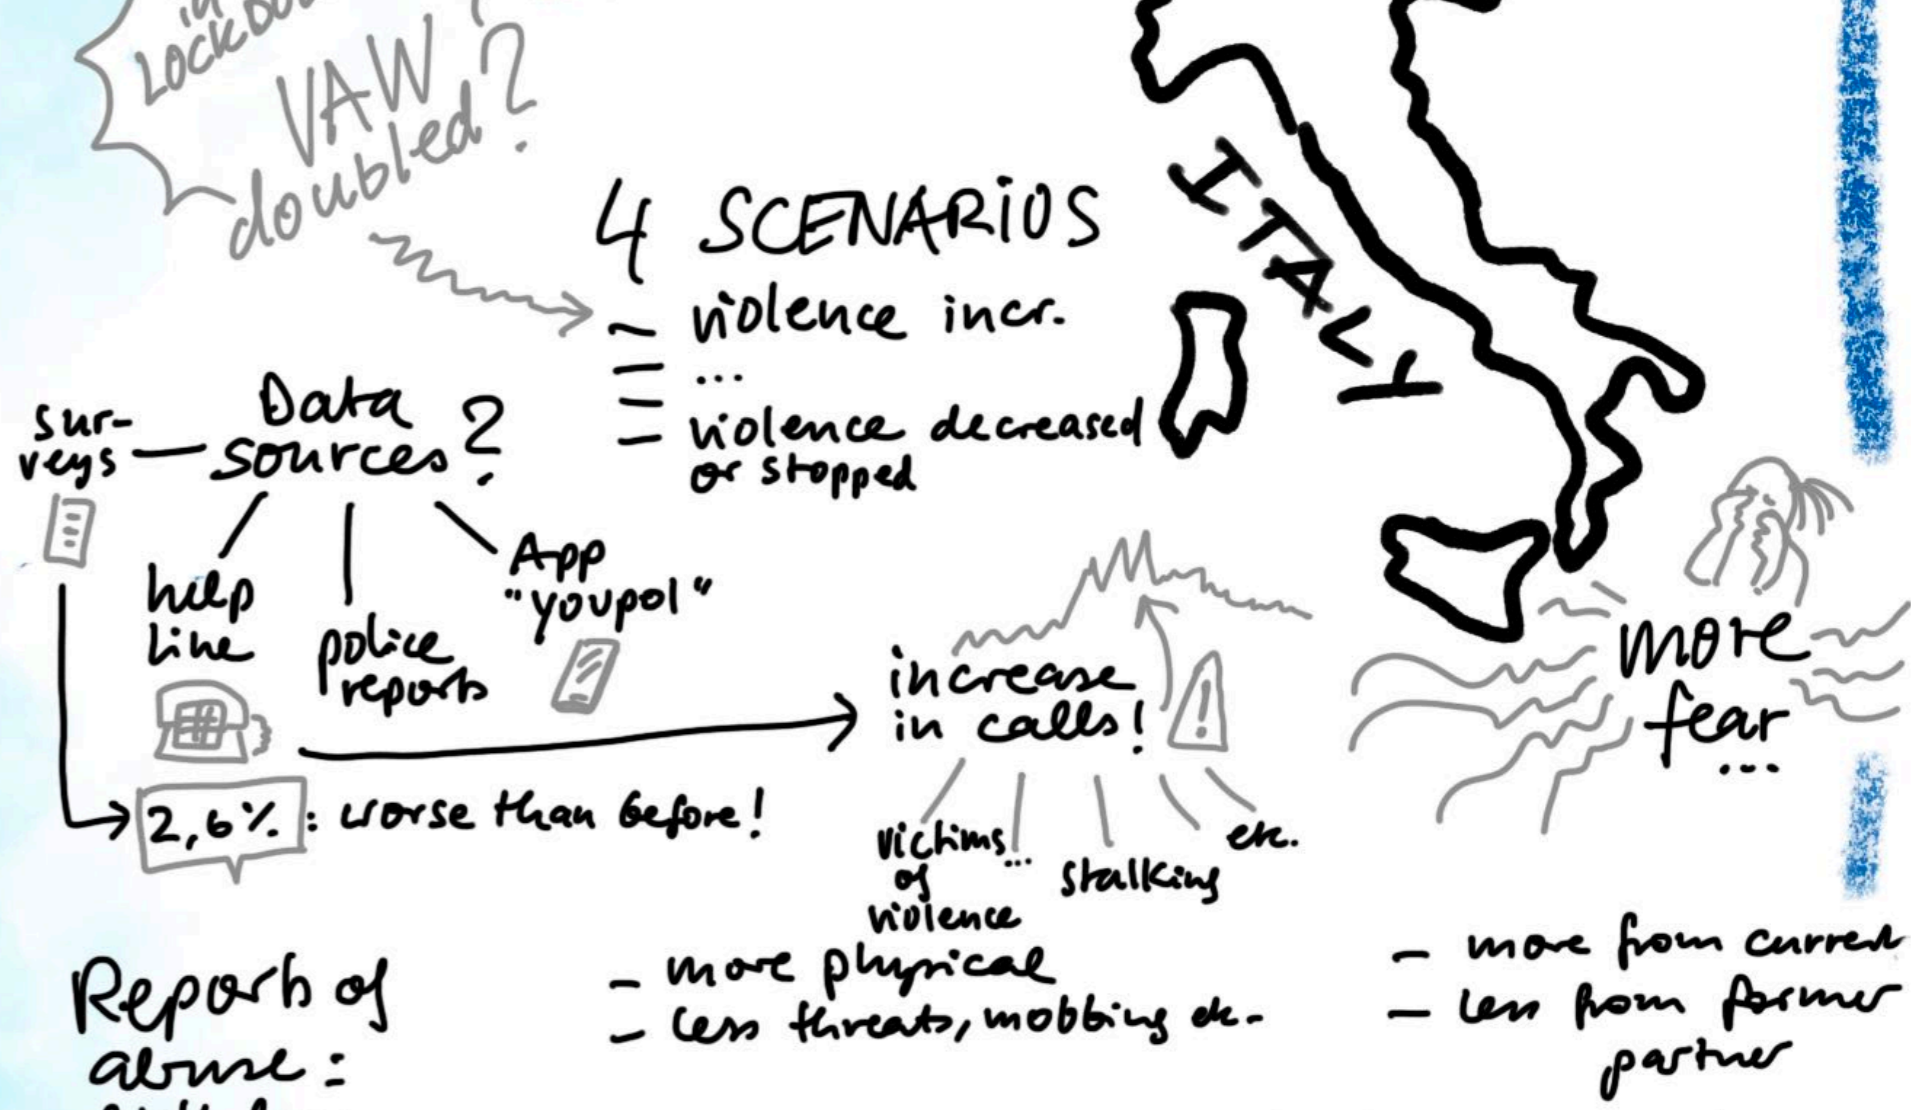 in
LOCKDOW
VAW
doubled?
4 SCENARIOS
– violence incr.
– ...
–
– violence decreased
or stopped
ITALY
Data
sources?
sur-
veys
help
line
police
reports
App
"youpol"
increase
in calls!
!
more
fear
...
2,6% : worse than before!
victims
of
violence
...
stalking
etc.
Reports of
abuse:
– more physical
– less threats, mobbing etc.
– more from current
– less from former
partner